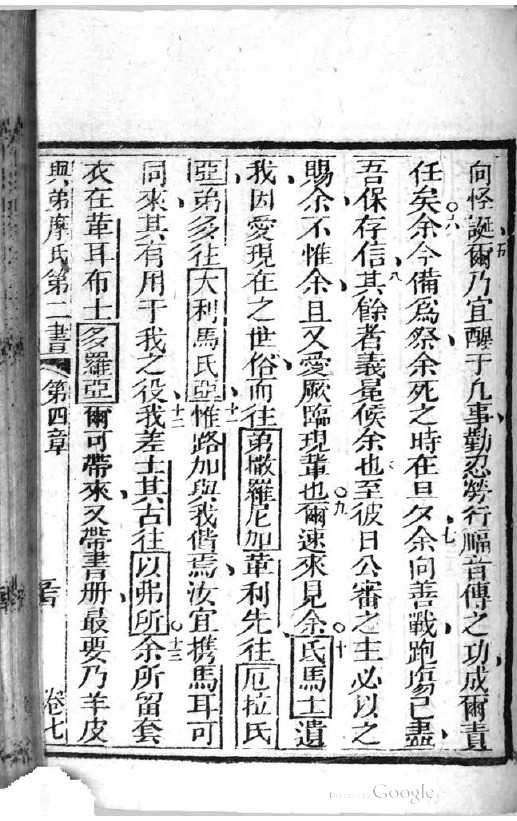 向怪誕爾乃宜醒于凡事勤忍勞行福音傳之功成爾責
任矣余今備爲祭余死之時在旦夕余向善戰跑塲已盡
吾保存信其餘者義冕候余也至彼日公審之主必以之
賜余不惟余且又愛厥臨現輩也爾速來見余氐馬士遺
我因愛現在之世俗而往弟撒羅尼加革利先往厄拉氐
亞弟多往大利馬氐亞惟路加與我偕焉汝宜携馬耳可
同來其有用于我之役我差土其古往以弗所余所留套
衣在革耳布士多羅亞爾可帶來又帶書册最要乃羊皮
與弟摩氐第二書 第四章 卷七
五
六
七
八
九
十
十一
十二
十三
Digitized by Google